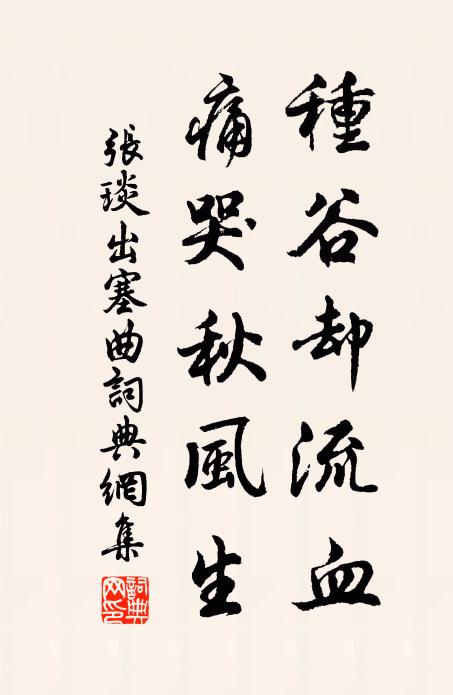 種谷却流血
痛哭秋風生
張琰出塞曲詞典網集
詞典网印